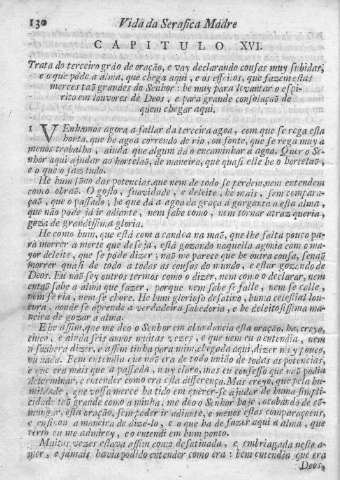 130 Vida da Serafica Madre
CAPITULO XVI.
Trata do terceiro gráo de oração, e vay declarando cousas muy subidas,
e o que póde a alma, que chega aqui, e os effeitos, que fazem estas
merces taõ grandes do Senhor: he muy para levantar o espi-
rito em louvores de Deos, e para grande consolação de
quem chegar aqui.
1 VEnhamos agora a fallar da terceira agoa, com que se rega esta
horta, que he agoa correndo de rio, ou fonte, que se rega muy a
menos trabalho, ainda que algum dá o encaminhar a agoa. Quer o Se-
nhor aqui ajudar ao hortelaõ, de maneira, que quasi elle he o hortelaõ,
e o que o faz tudo.
He hum sono das potencias, que nem de todo se perdem, nem entendem
como obraõ. O gosto, suavidade, e deleite, he mais, sem compara-
çaõ, que o passado; he que dá a agoa da graça á garganta a esta alma,
que não póde já ir adiente, nem sabe como, nem tornar atraz queria,
goza de grandissima gloria.
He como hum, que está com a candea na maõ, que lhe falta pouco pa-
ra morrer a morte que deseja, está gozando naquella agonia com o ma-
yor deleite, que se póde dizer; naõ me parece que he outra cousa, senaõ
morrer quasi de todo a todas as cousas do mundo, e estar gozando de
Deos. Eu naõ sey outros termos como o dizer, nem como o declarar, nem
entaõ sabe a alma que fazer, porque nem sabe se falle, nem se calle,
nem se ria, nem se chore. He hum glorioso desatino, huma celestial lou-
cura, aonde se aprende a verdadeira sabedoria, e he deleitosissima ma-
neira de gozar a alma.
E he assim, que me deo o Senhor em abundancia esta oração, ha, creyo,
cinco, e ainda seis annos muitas vezes, e que nem eu a entendia, nem
a soubera dizer, e assim tinha por mim chegada aqui, dizer muy pouco,
ou nada. Bem entendia que naõ era de todo união de todas as potencias,
e que era mais que a passada, muy claro, mas eu confesso que naõ podia
determinar, e entender como era esta differença. Mas creyo, que pela hu-
mildade, que vossa merce ha tido em querer-se ajudar de huma simpli-
cidade taõ grande como a minha, me deo o Senhor hoje, acabando de com-
mungar, esta oração, sem poder ir adiante, e me pos estas comparaçoens,
e ensinou a maneira de dize-lo, e o que ha de fazer aqui a alma, que
certo eu me admirey, e o entendi em hum ponto.
Muitas vezes estava assim como desatinada, e embriagada neste a-
mor, e jámais havia podido entender como era: bem entendia que era
Deos,